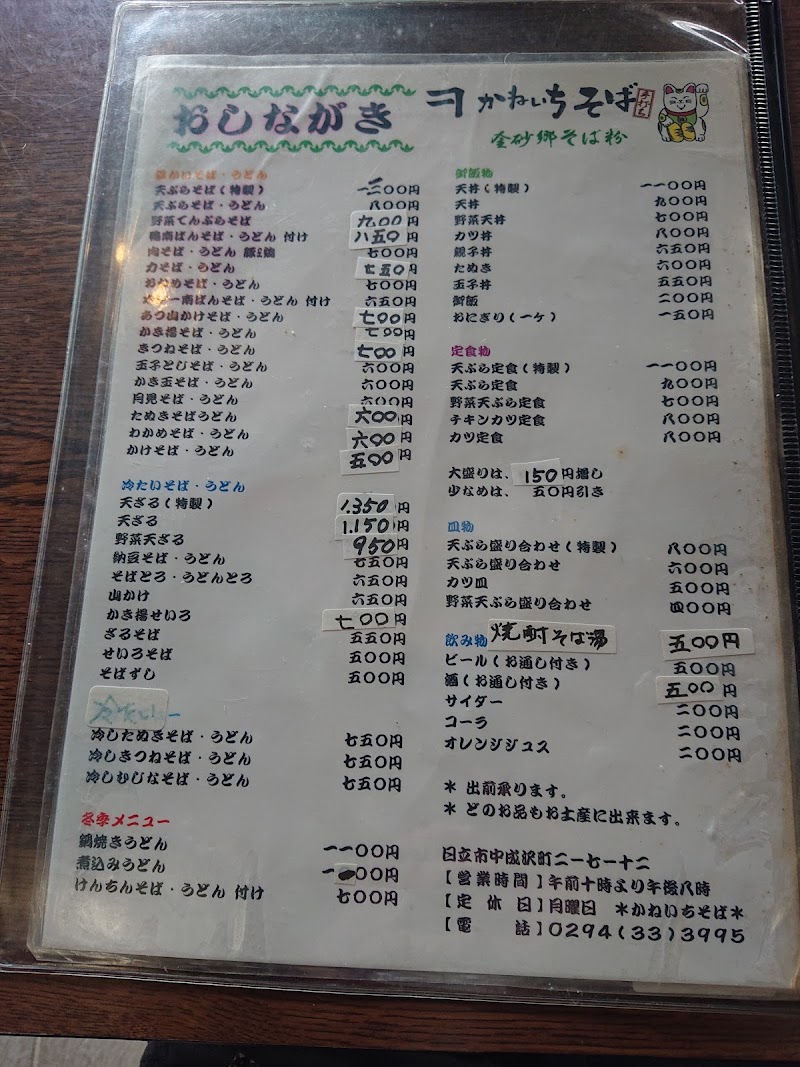 おしながき
かねいちそば
手打ち
金砂郷そば粉
温かいそば・うどん
天ぷらそば(特製) 一三〇〇円
天ぷらそば・うどん 八〇〇円
野菜てんぷらそば 九〇〇円
鴨南ばんそば・うどん 付け 八五〇円
肉そば・うどん 豚と鶏 七〇〇円
力そば・うどん 七五〇円
おかめそば・うどん 七〇〇円
カレー南ばんそば・うどん 付け 六五〇円
あつ山かけそば・うどん 七〇〇円
かき揚そば・うどん 七〇〇円
きつねそば・うどん 七〇〇円
玉子とじそば・うどん 六〇〇円
かき玉そば・うどん 六〇〇円
月見そば・うどん 六〇〇円
たぬきそばうどん 六〇〇円
わかめそば・うどん 六〇〇円
かけそば・うどん 五〇〇円
冷たいそば・うどん
天ざる(特製) 1.350円
天ざる 1.150円
野菜天ざる 950円
納豆そば・うどん 七五〇円
そばとろ・うどんとろ 六五〇円
山かけ 六五〇円
かき揚せいろ 七〇〇円
ざるそば 五五〇円
せいろそば 五〇〇円
そばずし 五〇〇円
冷したぬきそば・うどん 七五〇円
冷しきつねそば・うどん 七五〇円
冷しむじなそば・うどん 七五〇円
冬季メニュー
鍋焼きうどん 一一〇〇円
煮込みうどん
けんちんそば・うどん 付け 七〇〇円
御飯物
天丼(特製) 一一〇〇円
天丼 九〇〇円
野菜天丼 七〇〇円
カツ丼 八〇〇円
親子丼 六五〇円
たぬき 六〇〇円
玉子丼 五五〇円
御飯 二〇〇円
おにぎり(一ケ) 一五〇円
定食物
天ぷら定食(特製) 一一〇〇円
天ぷら定食 九〇〇円
野菜天ぷら定食 七〇〇円
チキンカツ定食 八〇〇円
カツ定食 八〇〇円
大盛りは、150円増し
少なめは、五〇円引き
皿物
天ぷら盛り合わせ(特製) 八〇〇円
天ぷら盛り合わせ 六〇〇円
カツ皿 五〇〇円
野菜天ぷら盛り合わせ 四〇〇円
飲み物 焼酎そば湯 五〇〇円
ビール(お通し付き) 五〇〇円
酒(お通し付き) 五〇〇円
サイダー 二〇〇円
コーラ 二〇〇円
オレンジジュス 二〇〇円
* 出前承ります。
* どのお品もお土産に出来ます。
日立市中成沢町二ー七ー十二
【営業時間】午前十時より午後八時
【定休日】月曜日 *かねいちそば*
【電話】0294(33)3995